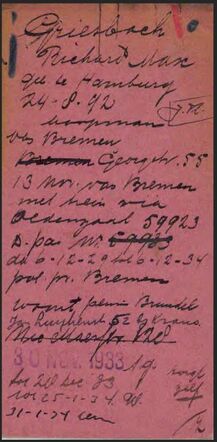 Griesbach
Richard Max
geb te Hamburg
24-8-92
koopman
vas Bremen
Bremen Georgstr. 55
13 Nov. van Bremen
met trein via
Oldenzaal 59923
D. pas Nr. 59923
dd 6-12-29 tot 6-12-34
pol pr. Bremen
woont
52
30 NOV. 1933
tot 20 Dec 33
tot 25-1-34
31-1-34